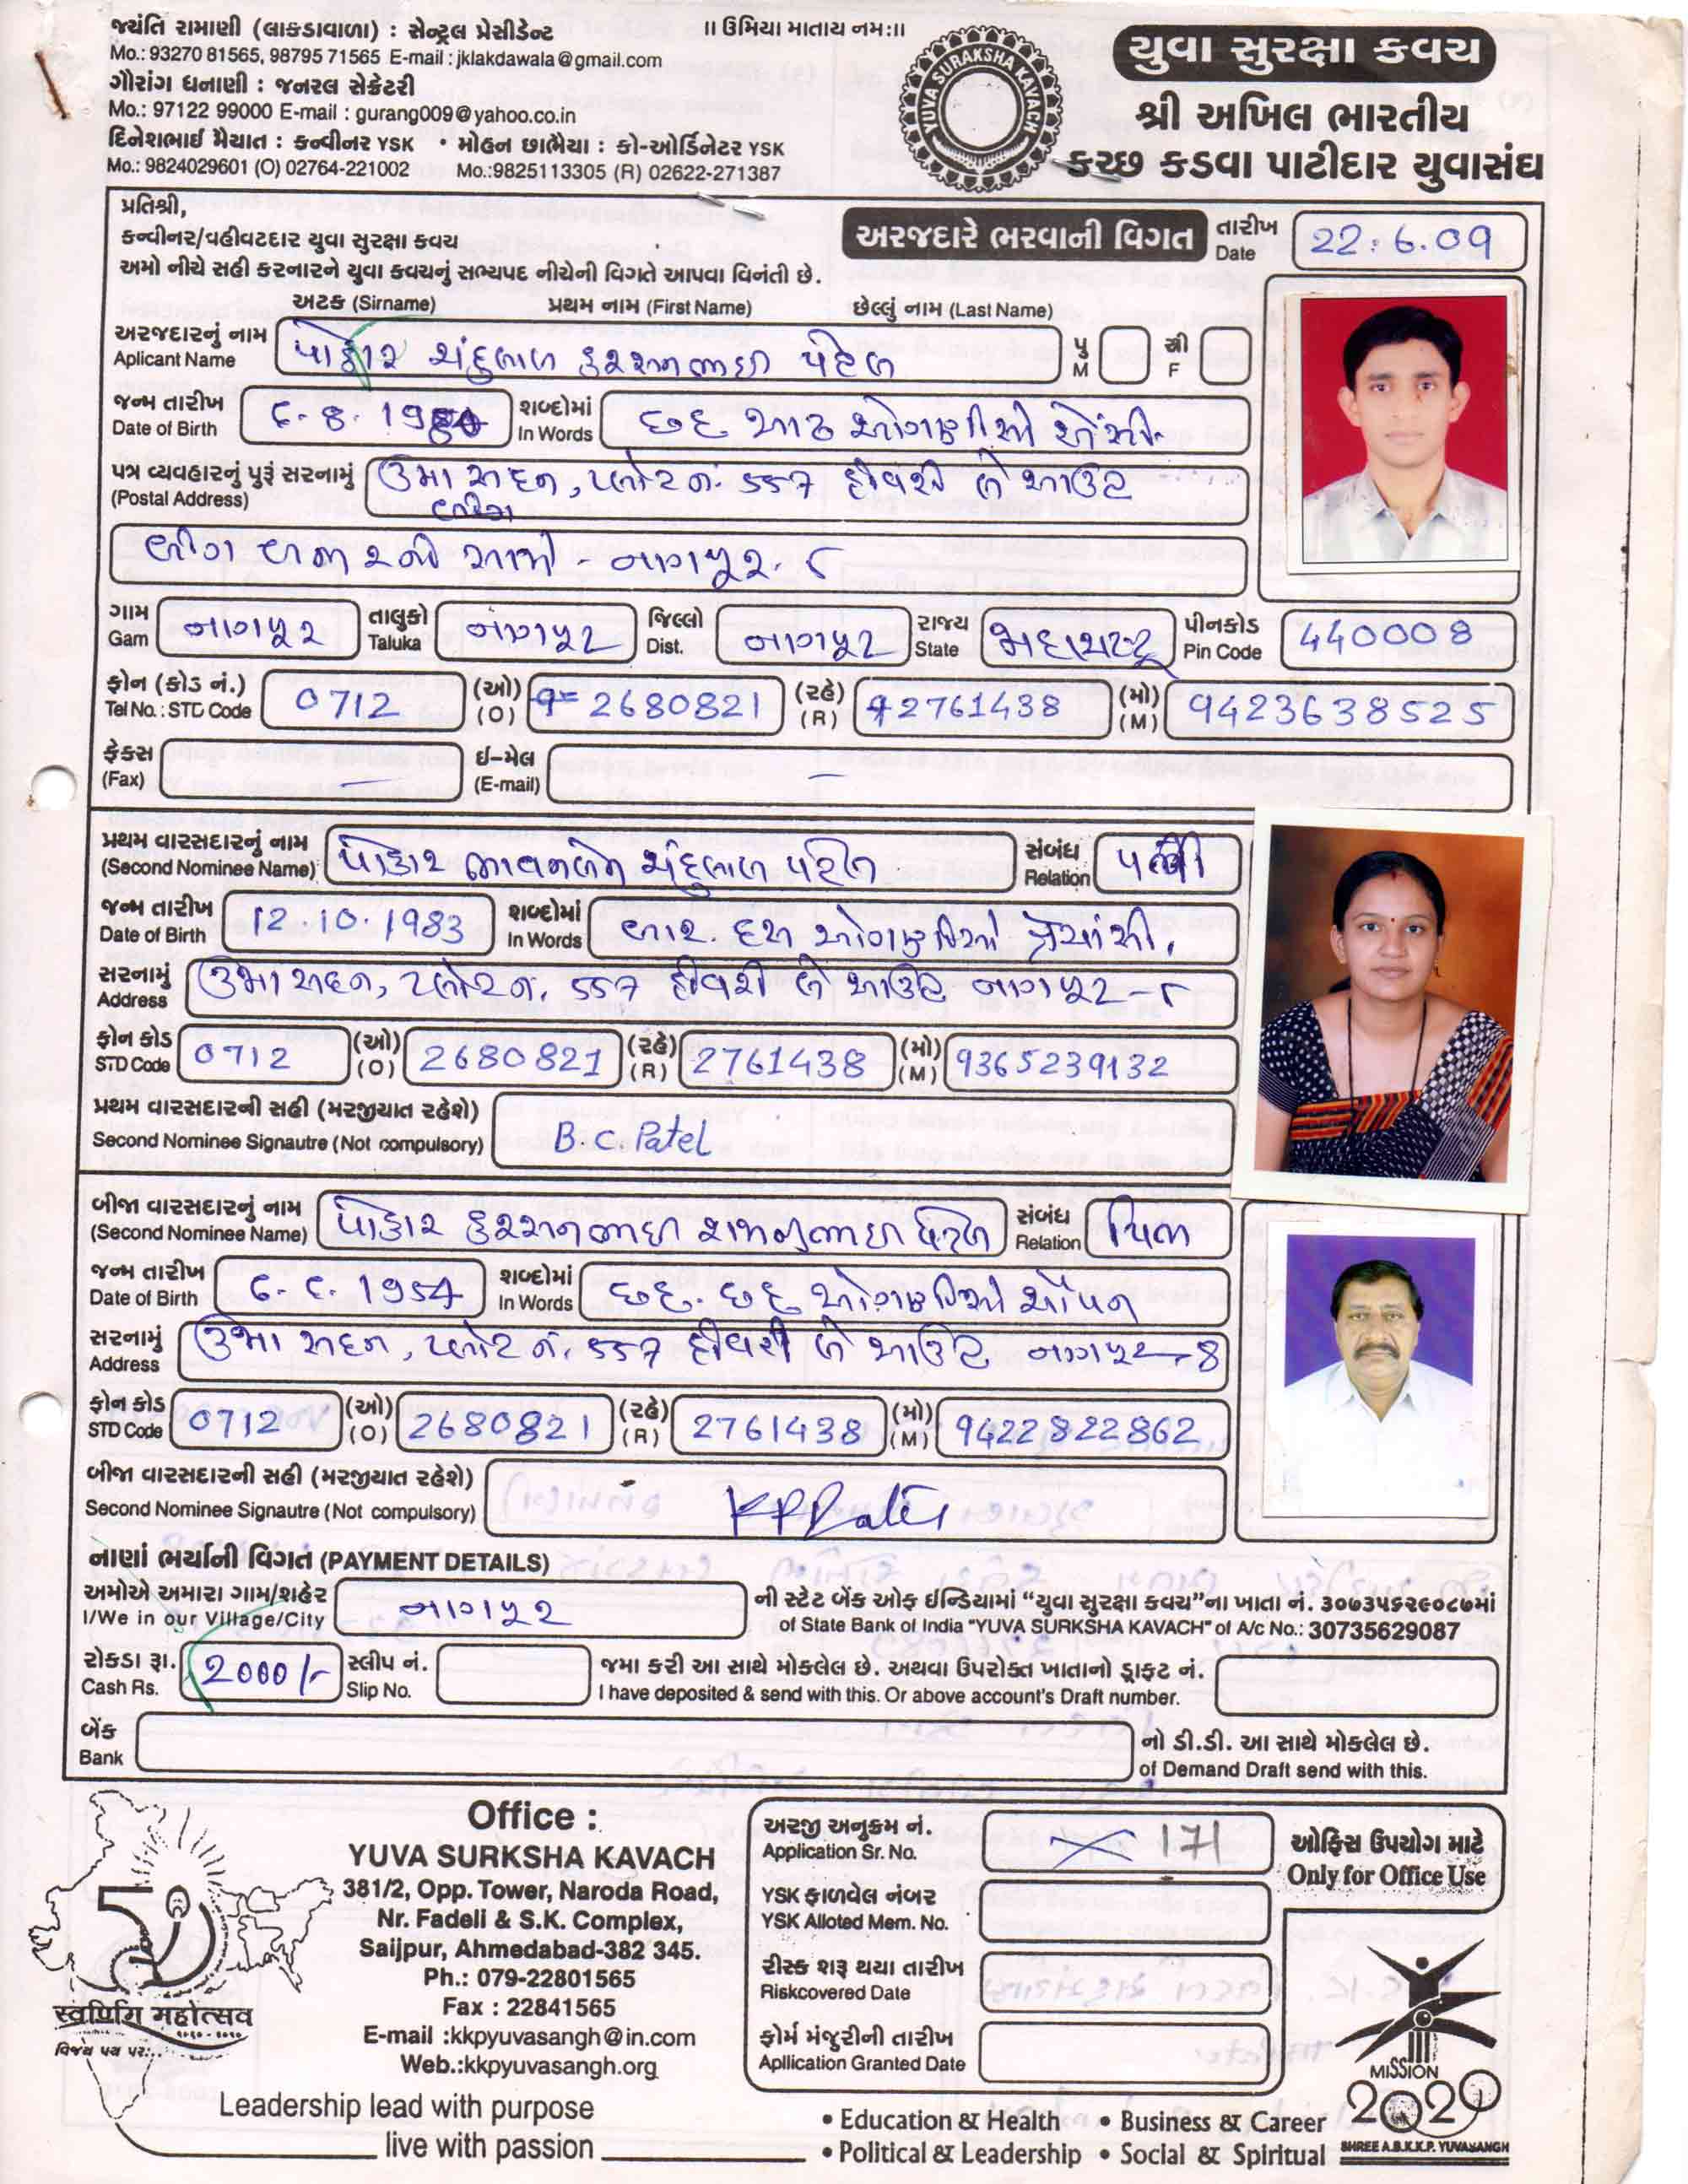 જયંતિ રામાણી (લાકડાવાળા) : સેન્ટ્રલ પ્રેસીડેન્ટ
Mo.: 93270 81565, 98795 71565 E-mail : jklakdawala@gmail.com
ગૌરાંગ ધનાણી : જનરલ સેક્રેટરી
Mo.: 97122 99000 E-mail : gurang009@yahoo.co.in
દિનેશભાઈ મૈયાત : કન્વીનર YSK • મોહન છાભૈયા : કો-ઓર્ડિનેટર YSK
Mo.: 9824029601 (O) 02764-221002 Mo.:9825113305 (R) 02622-271387
॥ ઉમિયા માતાય નમઃ॥
YUVA SURAKSHA KAVACH
યુવા સુરક્ષા કવચ
શ્રી અખિલ ભારતીય
કચ્છ કડવા પાટીદાર યુવાસંઘ
પ્રતિશ્રી,
કન્વીનર/વહીવટદાર યુવા સુરક્ષા કવચ
અમો નીચે સહી કરનારને યુવા કવચનું સભ્યપદ નીચેની વિગતે આપવા વિનંતી છે.
અરજદારે ભરવાની વિગત
તારીખ Date 22.6.09
અટક (Sirname) પ્રથમ નામ (First Name) છેલ્લું નામ (Last Name)
અરજદારનું નામ Aplicant Name પોકાર ચંદુલાલ કરશનભાઈ પટેલ પુ M સ્ત્રી F
જન્મ તારીખ Date of Birth ૬.8.1980 શબ્દોમાં In Words છહ આઠ ઓગણીસો એંસી
પત્ર વ્યવહારનું પુરૂં સરનામું (Postal Address) ઉમા સદન, પ્લોટ નં. 557 હીવરી લે આઉટ
સામે - નાગપુર. ૮
ગામ Gam નાગપુર તાલુકો Taluka નાગપુર જિલ્લો Dist. નાગપુર રાજ્ય State મહારાષ્ટ્ર પીનકોડ Pin Code 440008
ફોન (કોડ નં.) Tel No. : STD Code 0712 (ઓ) (O) 2680821 (રહે) (R) 2761438 (મો) (M) 9423638525
ફેક્સ (Fax) — ઇ-મેલ (E-mail) —
પ્રથમ વારસદારનું નામ (Second Nominee Name) પોકાર ભાવનાબેન ચંદુલાલ પટેલ સંબંધ Relation પત્ની
જન્મ તારીખ Date of Birth 12.10.1983 શબ્દોમાં In Words બાર. દસ ઓગણીસો ત્રેયાંસી.
સરનામું Address ઉમા સદન, પ્લોટ નં. 557 હીવરી લે આઉટ નાગપુર-૮
ફોન કોડ STD Code 0712 (ઓ) (O) 2680821 (રહે) (R) 2761438 (મો) (M) 9365239132
પ્રથમ વારસદારની સહી (મરજીયાત રહેશે)
Second Nominee Signautre (Not compulsory) B.C. Patel
બીજા વારસદારનું નામ (Second Nominee Name) પોકાર કરશનભાઈ રામજીભાઈ પટેલ સંબંધ Relation પિતા
જન્મ તારીખ Date of Birth ૬.૬.1954 શબ્દોમાં In Words છહ. છહ ઓગણીસો ચોપન
સરનામું Address ઉમા સદન, પ્લોટ નં. 557 હીવરી લે આઉટ નાગપુર-8
ફોન કોડ STD Code 0712 (ઓ) (O) 2680821 (રહે) (R) 2761438 (મો) (M) 9422822862
બીજા વારસદારની સહી (મરજીયાત રહેશે)
Second Nominee Signautre (Not compulsory)
નાણાં ભર્યાની વિગત (PAYMENT DETAILS)
અમોએ અમારા ગામ/શહેર નાગપુર ની સ્ટેટ બેંક ઓફ ઇન્ડિયામાં “યુવા સુરક્ષા કવચ”ના ખાતા નં. ૩૦૭૩૫૬૨૯૦૮૭માં
I/We in our Village/City of State Bank of India "YUVA SURKSHA KAVACH" of A/c No.: 30735629087
રોકડા રૂા. Cash Rs. 2000/- સ્લીપ નં. Slip No. જમા કરી આ સાથે મોકલેલ છે. અથવા ઉપરોક્ત ખાતાનો ડ્રાફ્ટ નં.
I have deposited & send with this. Or above account's Draft number.
બેંક Bank નો ડી.ડી. આ સાથે મોકલેલ છે.
of Demand Draft send with this.
Office :
YUVA SURKSHA KAVACH
381/2, Opp. Tower, Naroda Road,
Nr. Fadeli & S.K. Complex,
Saijpur, Ahmedabad-382 345.
Ph.: 079-22801565
Fax : 22841565
E-mail :kkpyuvasangh@in.com
Web.:kkpyuvasangh.org
અરજી અનુક્રમ નં. Application Sr. No. 171
YSK ફાળવેલ નંબર YSK Alloted Mem. No.
રીસ્ક શરૂ થયા તારીખ Riskcovered Date
ફોર્મ મંજુરીની તારીખ Apllication Granted Date
ઓફિસ ઉપયોગ માટે
Only for Office Use
50
स्वर्णिम महोत्सव
વિજય પથ પર...
Leadership lead with purpose
live with passion
• Education & Health • Business & Career
• Political & Leadership • Social & Spiritual
MISSION
2020
SHREE A.B.K.K.P. YUVASANGH